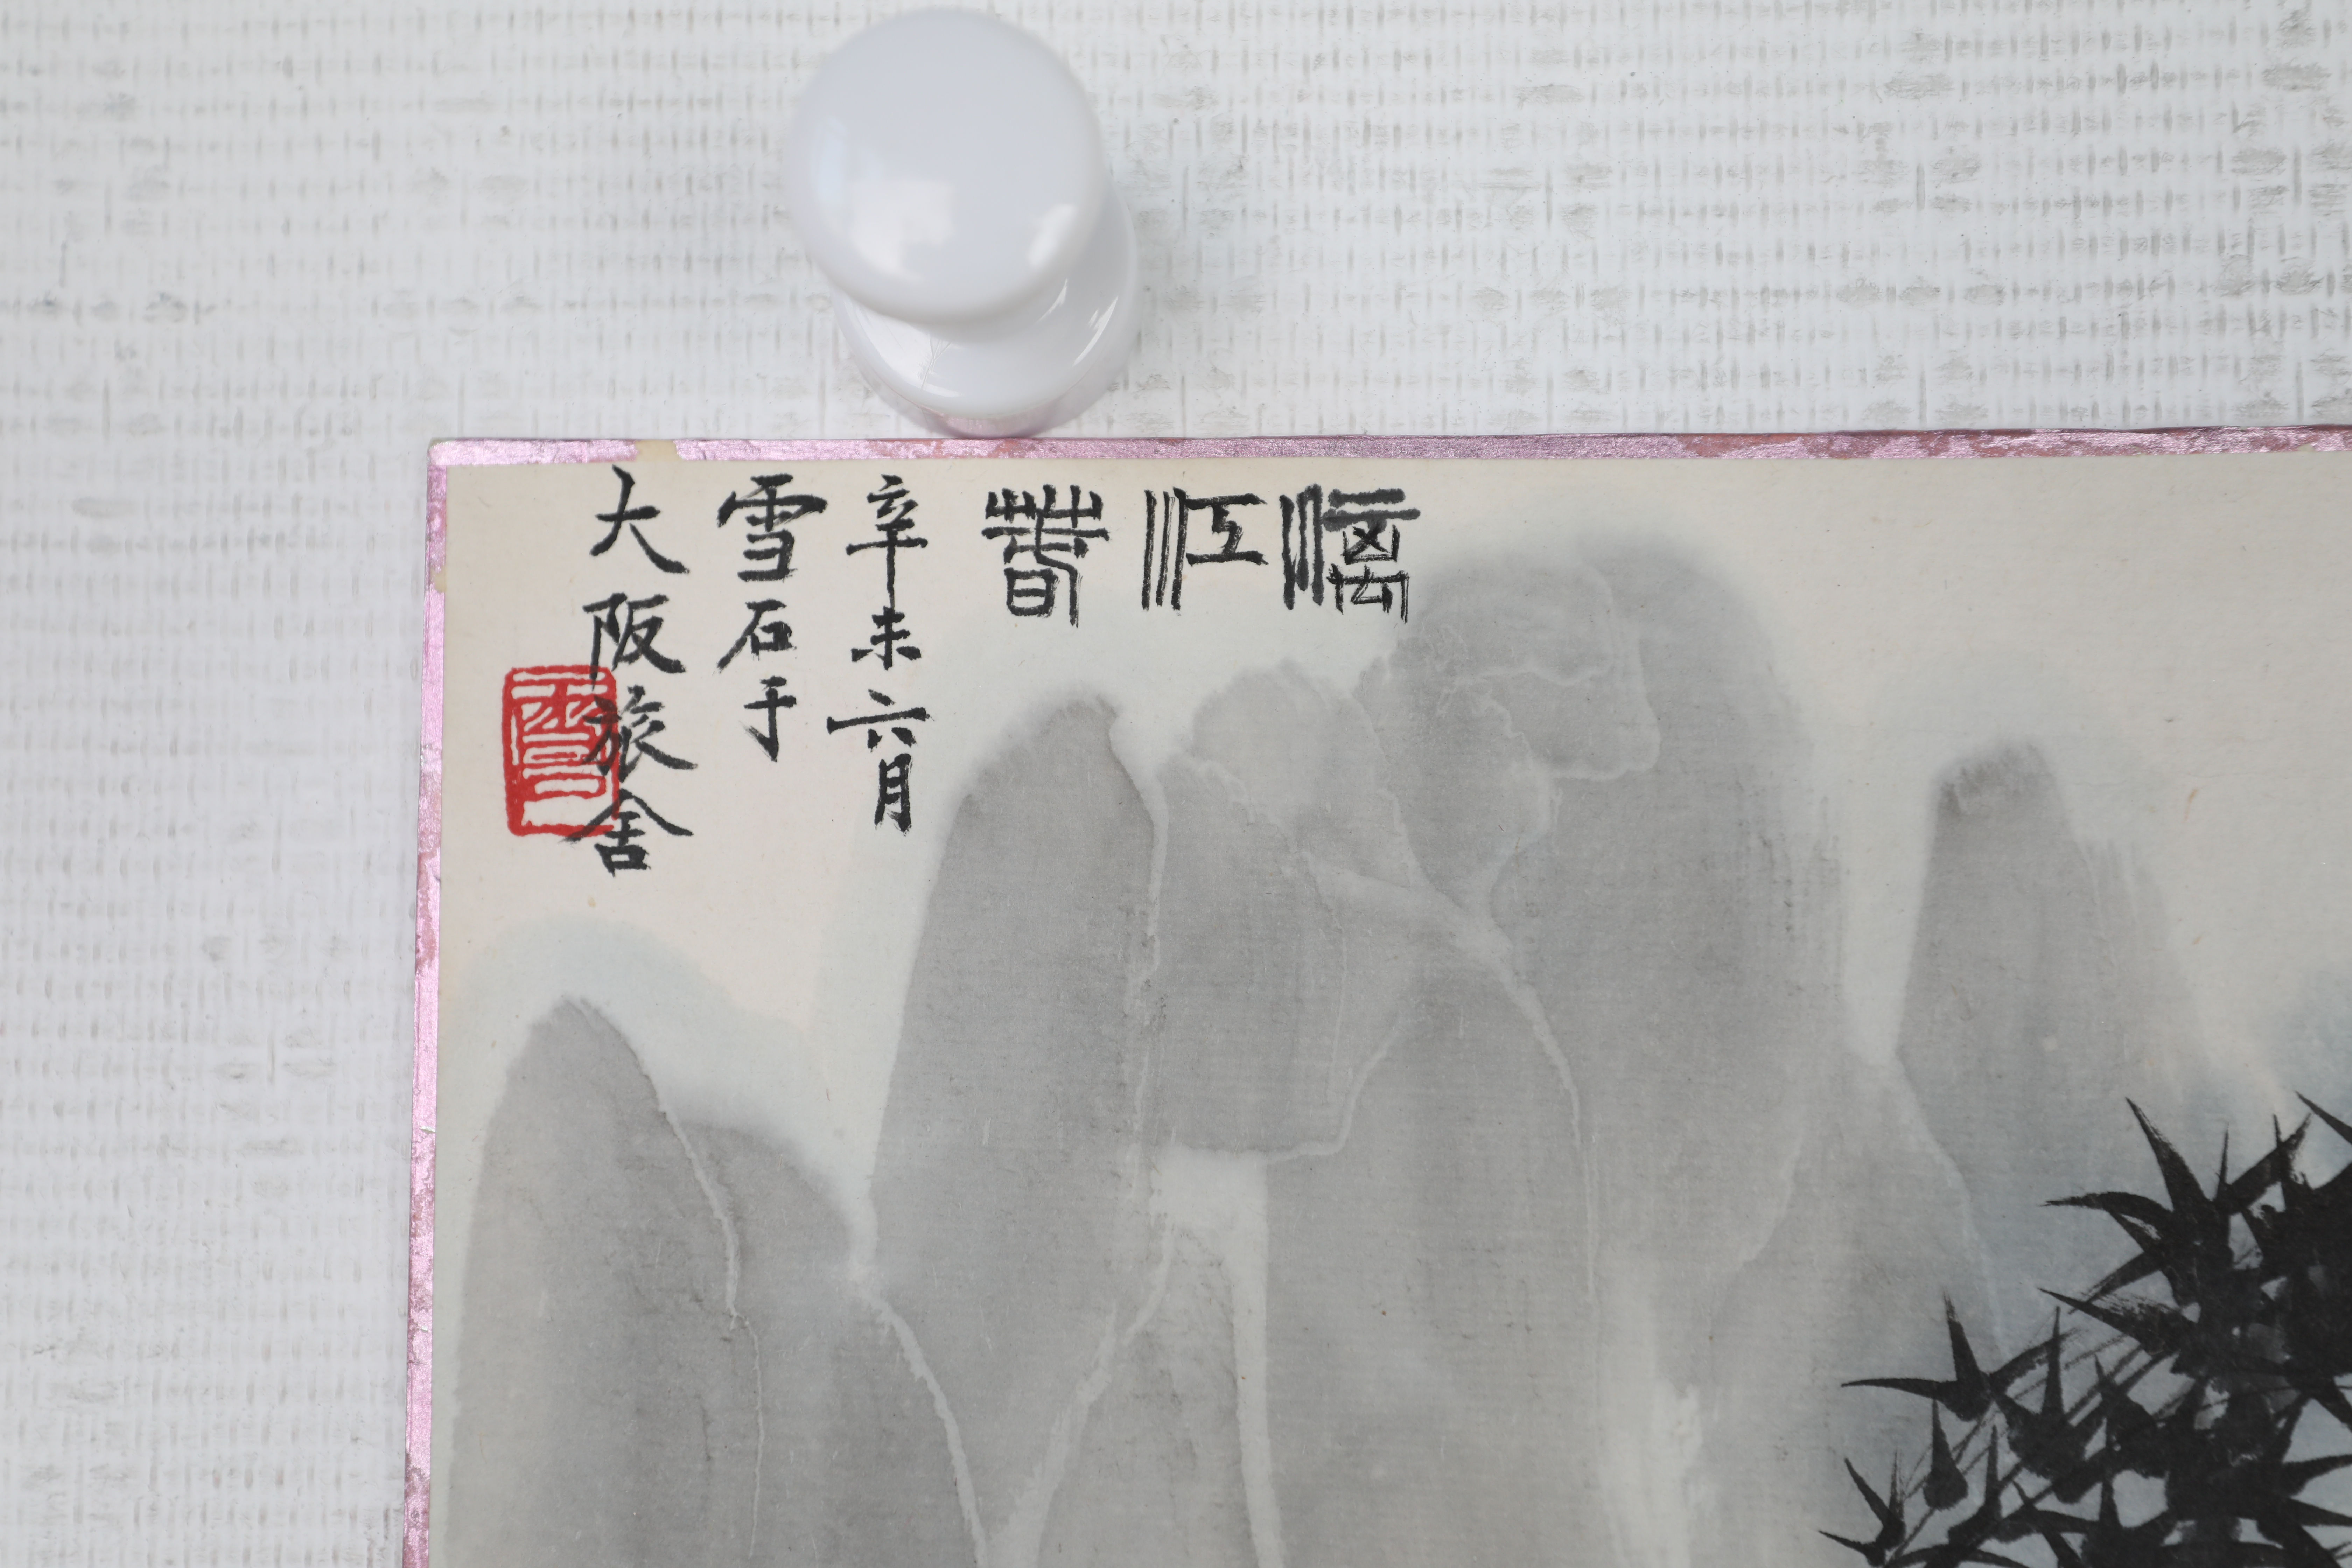 漓江春
辛未六月
雪石于
大阪旅舍